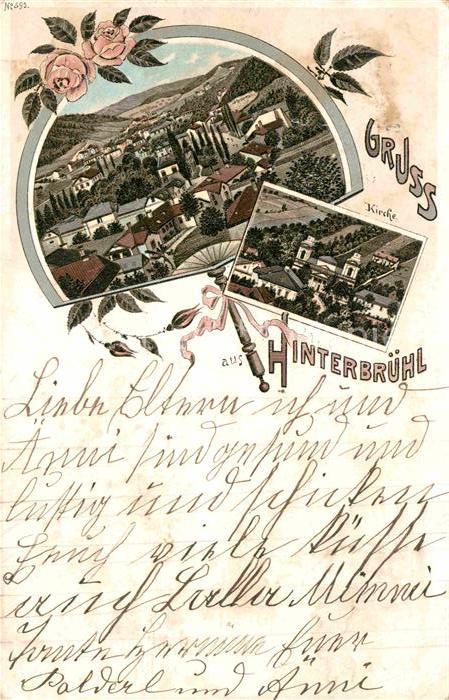 No 592.
GRUSS
Kirche
aus HINTERBRÜHL
Liebe Eltern ich und
Änni sind gesund und
lustig und schicken
Euch viele Küsse
auch Lalla Mimmi
Tante Hermine Euer
Polderl und Änni